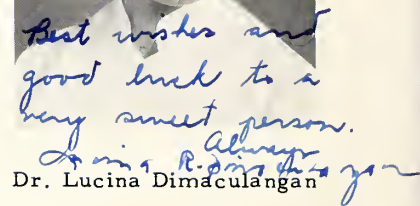 Best wishes and
good luck to a
very sweet person.
Always
Lucina R. Dimaculangan
Dr. Lucina Dimaculangan